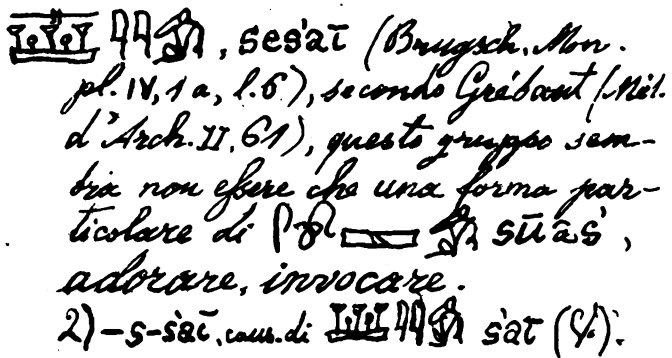 , sesʼaī (Brugsch. Mon.
pl. IV, 1 a, l. 6), secondo Grébaut (Mél.
d'Arch. II, 61), questo gruppo sem-
bra non eſsere che una forma par-
ticolare di sūaśʼ,
adorare, invocare.
2) – s-sʼaī, caus. di sʼaī